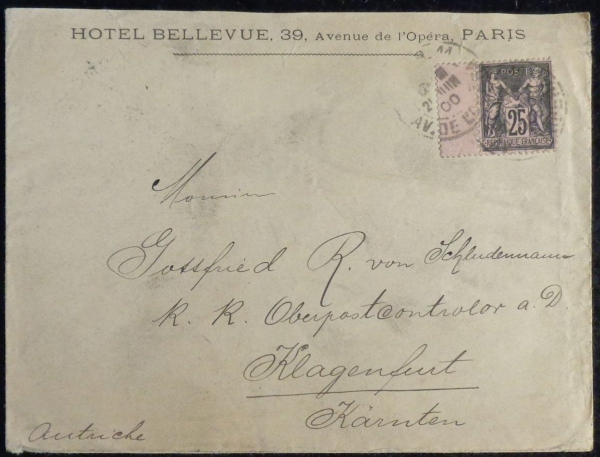 HOTEL BELLEVUE, 39, Avenue de l'Opéra, PARIS
00
AV. DE L'
POSTES
25
REPUBLIQUE FRANÇAISE
Monsieur
Gottfried R. von Schludermann
K. K. Oberpostcontrolor a. D.
Klagenfurt
Kärnten
Autriche